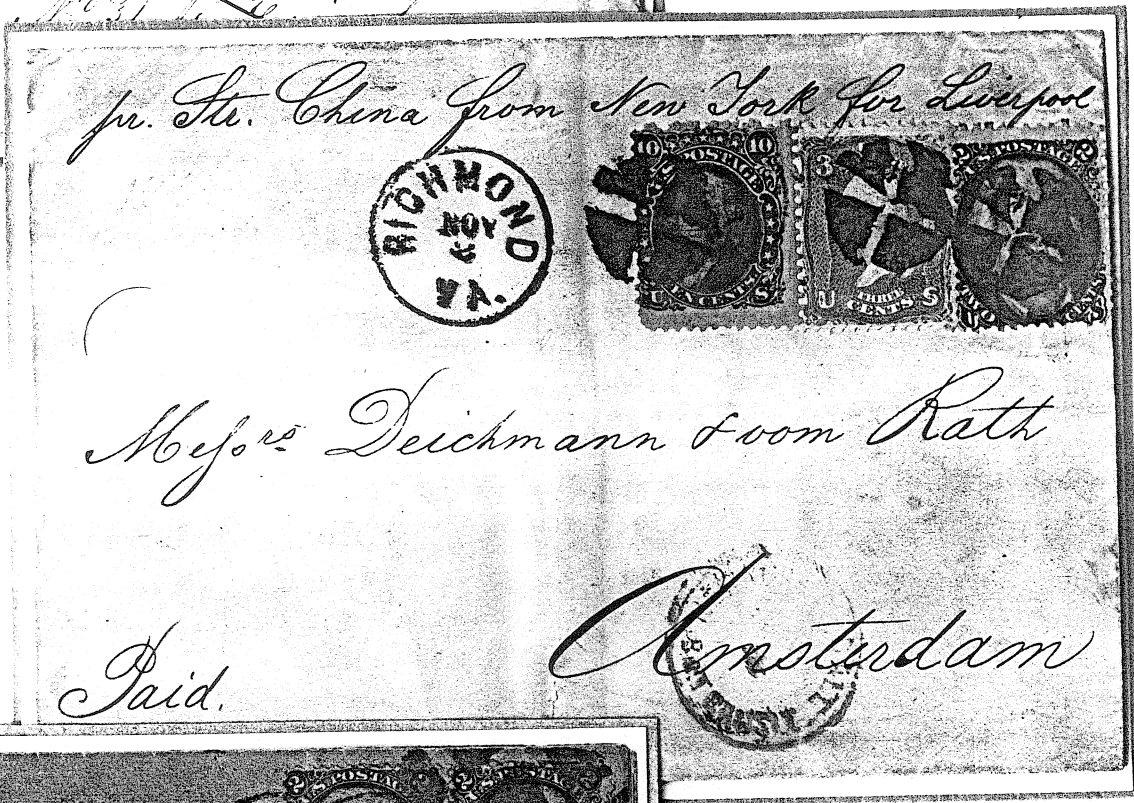 pr. Str. China from New York for Liverpool
RICHMOND
NOV
VA.
10 10
U.S. POSTAGE
TEN CENTS
U S
3
U THREE CENTS S
2
U.S. POSTAGE
CENTS
Messrs Deichmann & vom Rath
Amsterdam
Paid.
2 2
POSTAGE